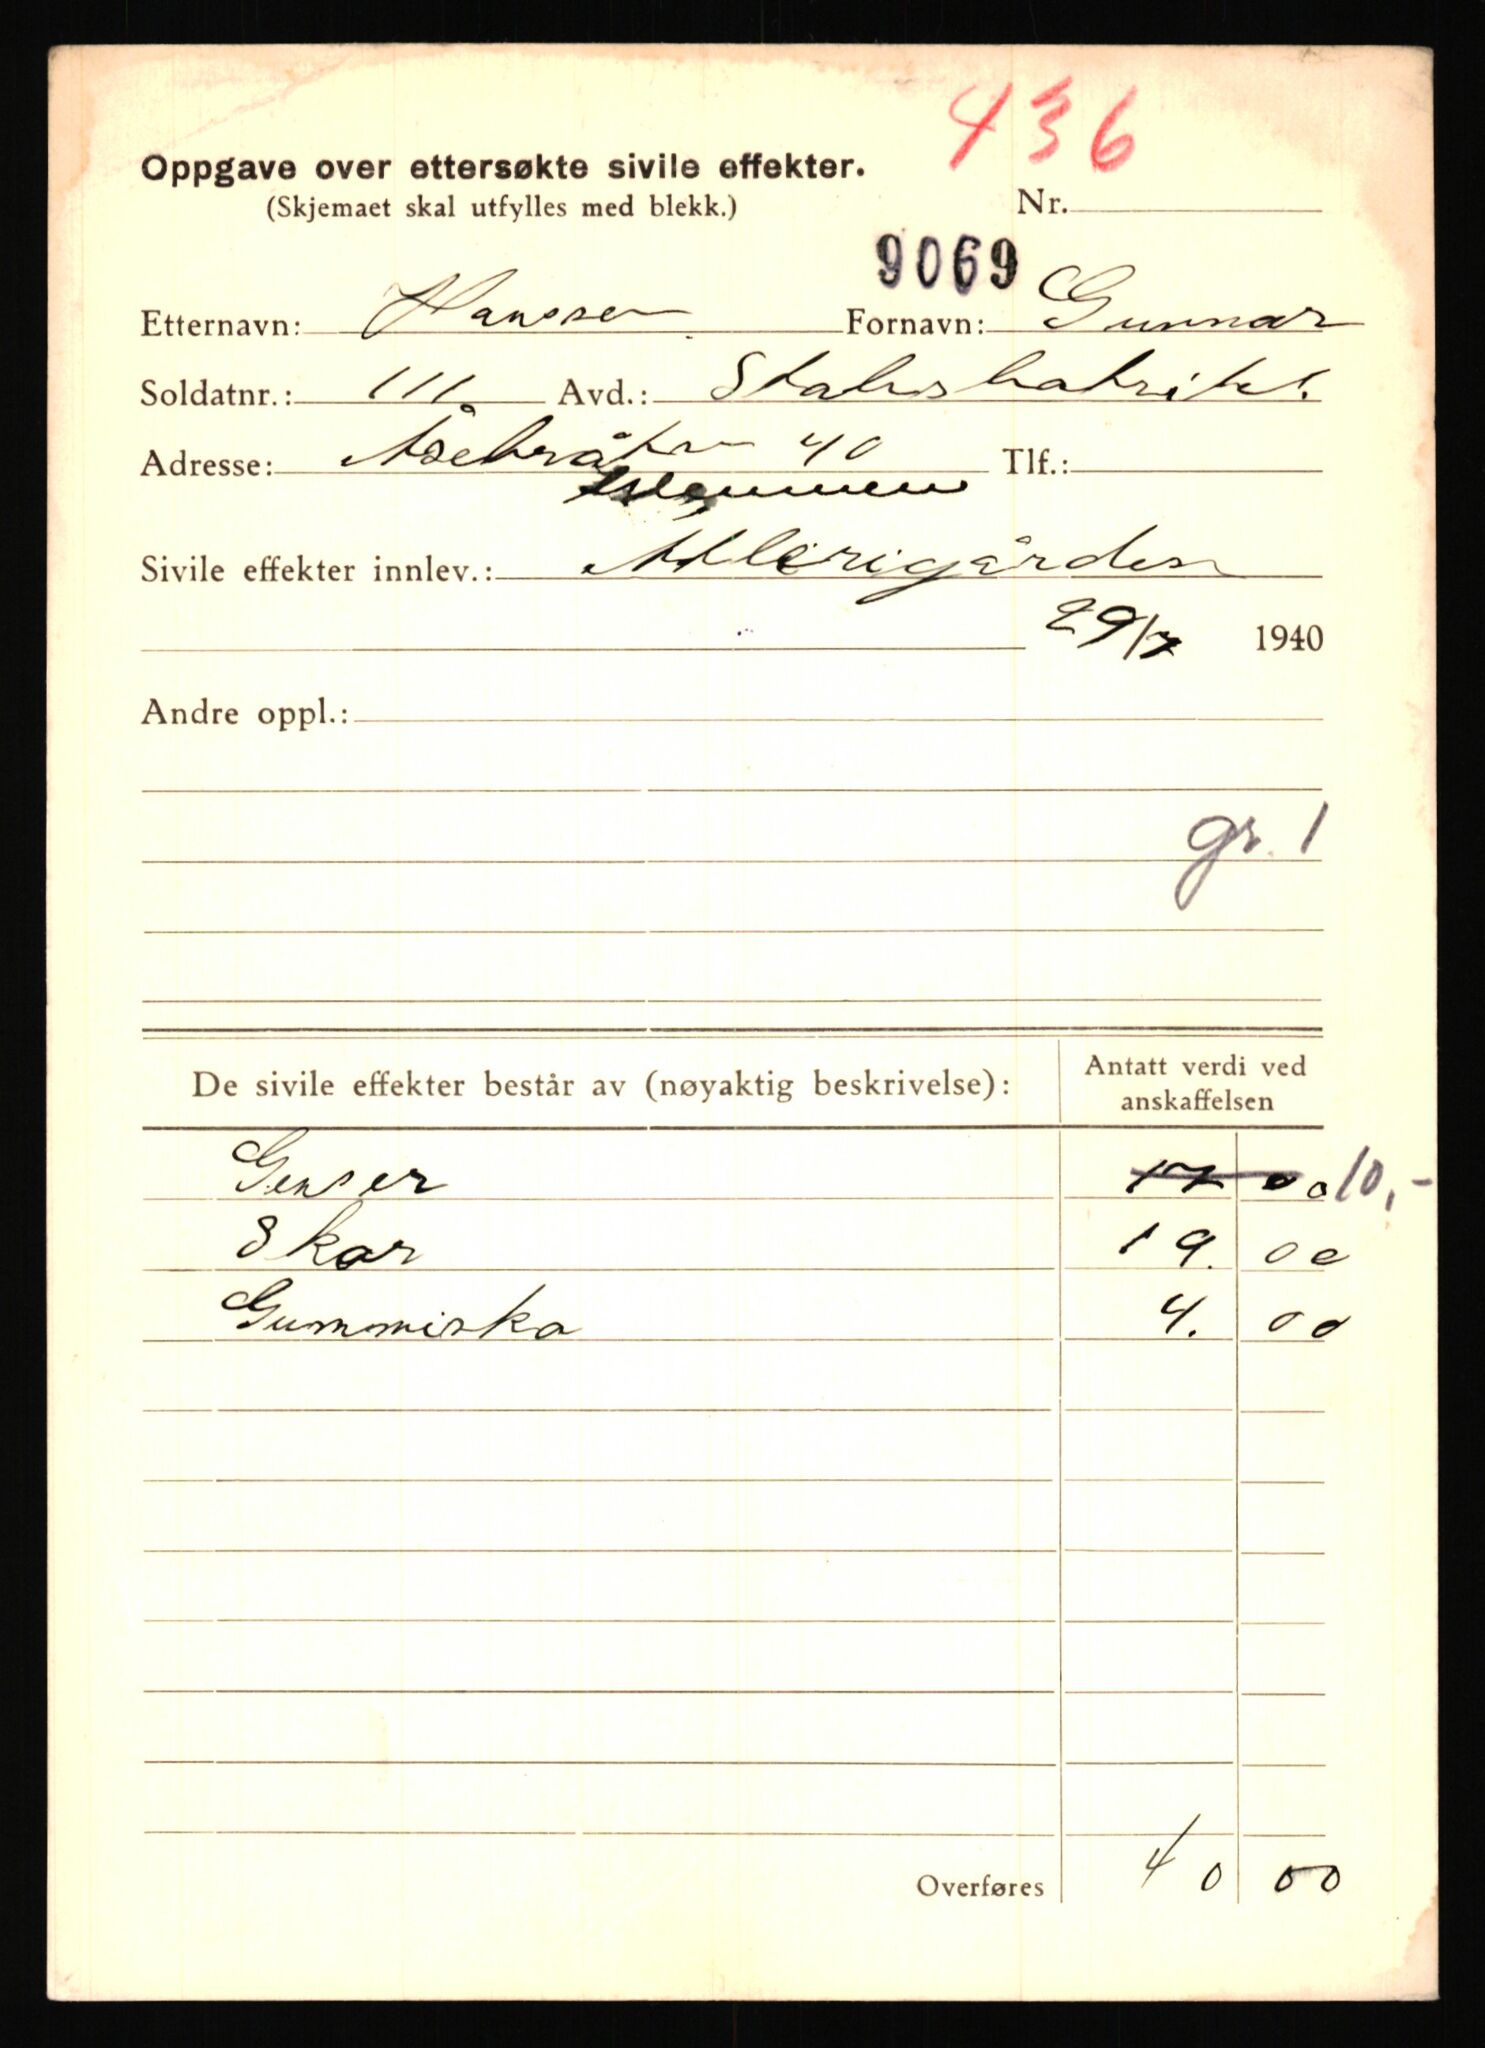 436
Oppgave over ettersøkte sivile effekter.
(Skjemaet skal utfylles med blekk.)
Nr.
9069
Etternavn: Hanssen Fornavn: Gunnar
Soldatnr.: 111 Avd.: Stabsbatri
Adresse: Åsebråtn 40 Tlf.:
Sivile effekter innlev.: Attlerigården
29/7 1940
Andre oppl.:
gr. 1
De sivile effekter består av (nøyaktig beskrivelse): Antatt verdi ved anskaffelsen
Genser 17 00 10,-
Skor 19. 00
Gummisko 4. 00
Overføres 40 00